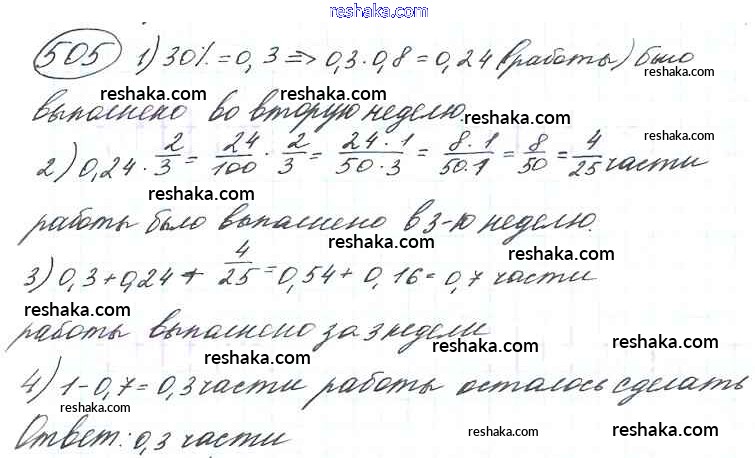 reshaka.com
505 1) 30% = 0,3 => 0,3·0,8 = 0,24 (работы) было
reshaka.com reshaka.com reshaka.com
выполнено во вторую неделю.
reshaka.com
2) 0,24 · 2/3 = 24/100 · 2/3 = 24·1/50·3 = 8·1/50·1 = 8/50 = 4/25 части
reshaka.com
reshaka.com
работы было выполнено в 3-ю неделю.
reshaka.com reshaka.com
3) 0,3+0,24 + 4/25 = 0,54 + 0,16 = 0,7 части
reshaka.com reshaka.com
работы выполнено за 3 недели
reshaka.com reshaka.com
4) 1-0,7 = 0,3 части работы осталось сделать
reshaka.com reshaka.com
Ответ: 0,3 части
reshaka.com reshaka.com